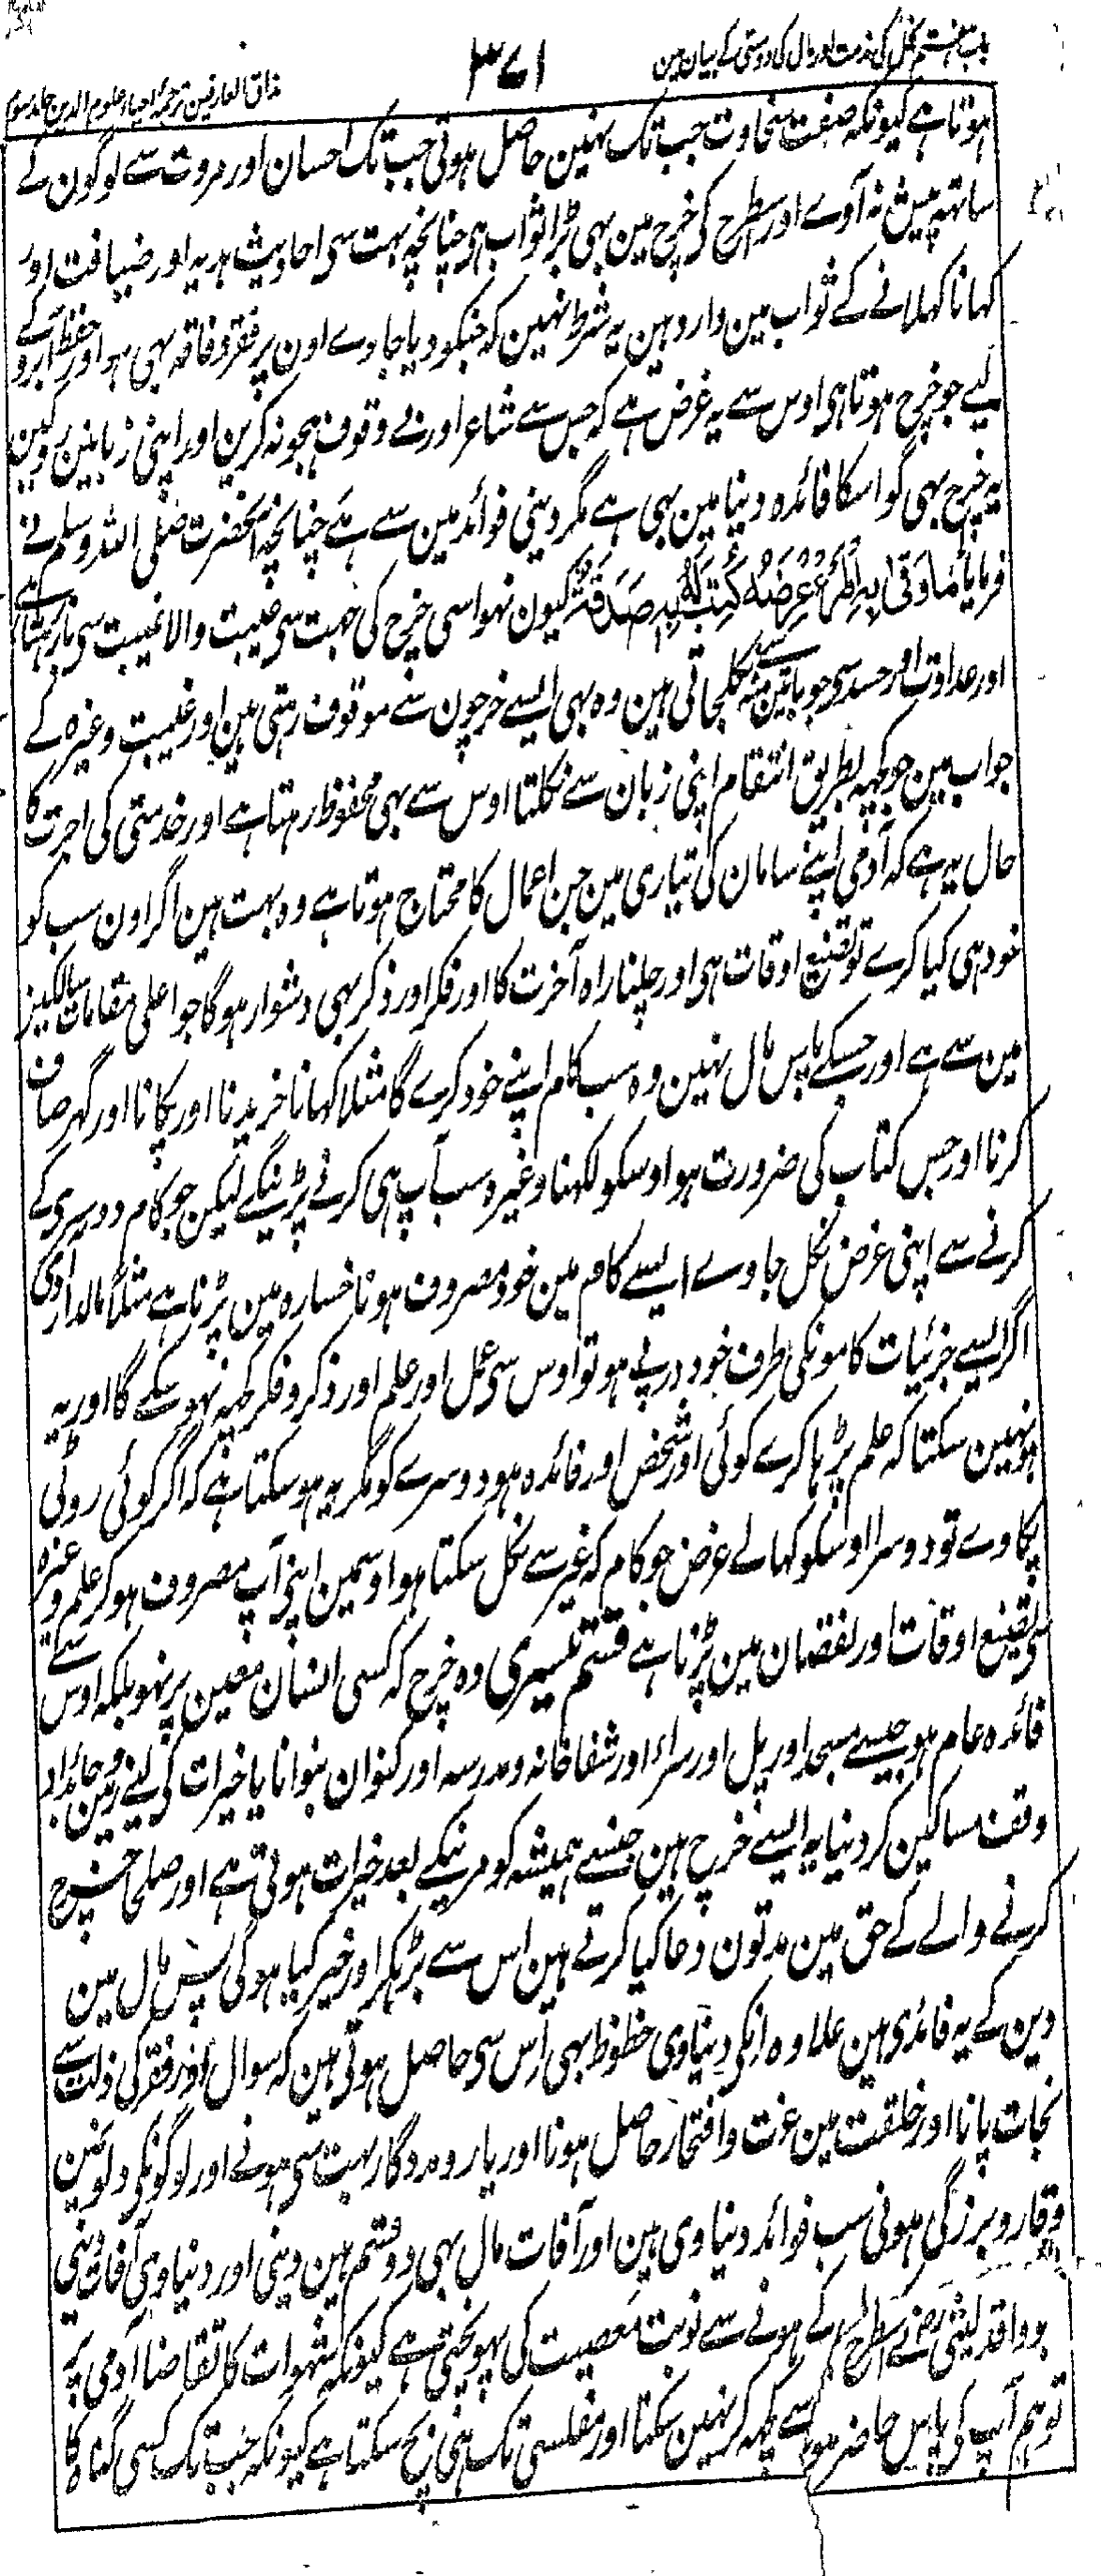 باب ہفتم بخل کی مذمت اور مال کی دوستی کے بیان مین
۳۷۱
مذاق العارفین ترجمۂ احیاء علوم الدین جلد سوم
ہوتا ہے کیونکہ صفت سخاوت جب تک نہین حاصل ہوتی جب تک احسان اور مروت سے لوگون کے
ساتہہ پیش نہ آوے اور اسطرح کی خرچ مین بہی بڑا ثواب ہی چنانچہ بہت سی احادیث ہدیہ اور ضیافت اور
کہانا کہلانے کے ثواب مین وارد ہین یہ شرط نہین کہ جنکو دیا جاوے اون پر فقر و فاقہ بہی ہو اور حفظ آبرو کے
لیے جو خرچ ہوتا ہی اوس سے یہ غرض ہے کہ جس سے شاعر اور بے وقوف ہجو نہ کرین اور اپنی زبانین روکین
یہ خرچ بہی گو اسکا فائدہ دنیا مین بہی ہے مگر دینی فوائد مین سے ہے چنانچہ آنحضرت صلی اللہ وسلم نے
فرمایا مَا وَقٰی بِهِ الْمَرْءُ عِرْضَهُ كُتِبَ لَهُ بِهِ صَدَقَةٌ کیون نہو اسی خرچ کی جہت سی غیبت والا غیبت سی باز رہتا ہے
اور عداوت اور حسد سی جو باتین منہ سے نکلجاتی ہین وہ بہی ایسے خرچون سے موقوف رہتی ہین اور غیبت وغیرہ کے
جواب مین جو کچہہ بطریق انتقام اپنی زبان سے نکلتا اوس سے بہی محفوظ رہتا ہے اور خدمتی کی اجرت کا
حال یہ ہے کہ آدمی اپنے سامان کی تیاری مین جن اعمال کا محتاج ہوتا ہے وہ بہت ہین اگر اون سب کو
خود ہی کیا کرے تو تضیع اوقات ہی اور چلنا راہ آخرت کا اور فکر اور ذکر بہی دشوار ہوگا جو اعلی مقامات سالکین
مین سے ہے اور جسکے پاس مال نہین وہ سب کام اپنے خود کرے گا مثلا کہانا خریدنا اور پکانا اور گہر صاف
کرنا اور جس کتاب کی ضرورت ہو اوسکو لکہنا وغیرہ سب آپ ہی کرنے پڑینگے لیکن جو کام دوسری کے
کرنے سے اپنی غرض نکل جاوے ایسے کام مین خود مصروف ہونا خسارہ مین پڑنا ہے مثلا مالدار آدمی
اگر ایسے جزئیات کامونکی طرف خود درپے ہو تو اوس سی عمل اور علم اور ذکر و فکر کچہہ نہو سکے گا اور یہ
ہو نہین سکتا کہ علم پڑہا کرے کوئی اور شخص اور فائدہ ہو دوسرے کو مگر یہ ہو سکتا ہے کہ اگر کوئی روٹی
پکاوے تو دوسرا اوسکو کہالے غرض جو کام کہ غیر سے نکل سکتا ہو اوسمین اپنی آپ مصروف ہو کر علم وغیرہ
سی تضیع اوقات اور نقصان مین پڑنا ہے قسم تیسری وہ خرچ کہ کسی انسان معین پر نہو بلکہ اوس سے
فائدہ عام ہو جیسے مسجد اور پل اور سراے اور شفا خانہ و مدرسہ اور کنوان بنوانا یا خیرات کی لیے زمین و جائداد
وقف مساکین کر دنیا یہ ایسے خرچ ہین جنسے ہمیشہ کو مرنیکے بعد خیرات ہوتی ہے اور صلحا خرچ
کرنے والے کے حق مین مدتون دعا کیا کرتے ہین اس سے بڑہکر اور خیر کیا ہوگی پس مال مین
دین کے یہ فائدی ہین علاوہ انکی دنیاوی حظوظ بہی اس سی حاصل ہوتی ہین کہ سوال اور فقر کی ذلت سے
نجات پانا اور خلقت مین عزت و افتخار حاصل ہونا اور یار و مددگار بہت سی ہونے اور لوگونکی دلونمین
وقار و بزرگی ہونی سب فوائد دنیاوی ہین اور آفات مال بہی دو قسم ہین دینی اور دنیاوی آفات دینی
کے ہونے سے نوبت معصیت کی پہونچتی ہے کیونکہ شہوات کا تقاضا آدمی پر
توہم آپ کی پاس حاضر ہو سے کچہہ کر نہین سکتا اور مفلسی تک ہی بچ سکتا ہے کیونکہ جب تک کسی گناہ کا